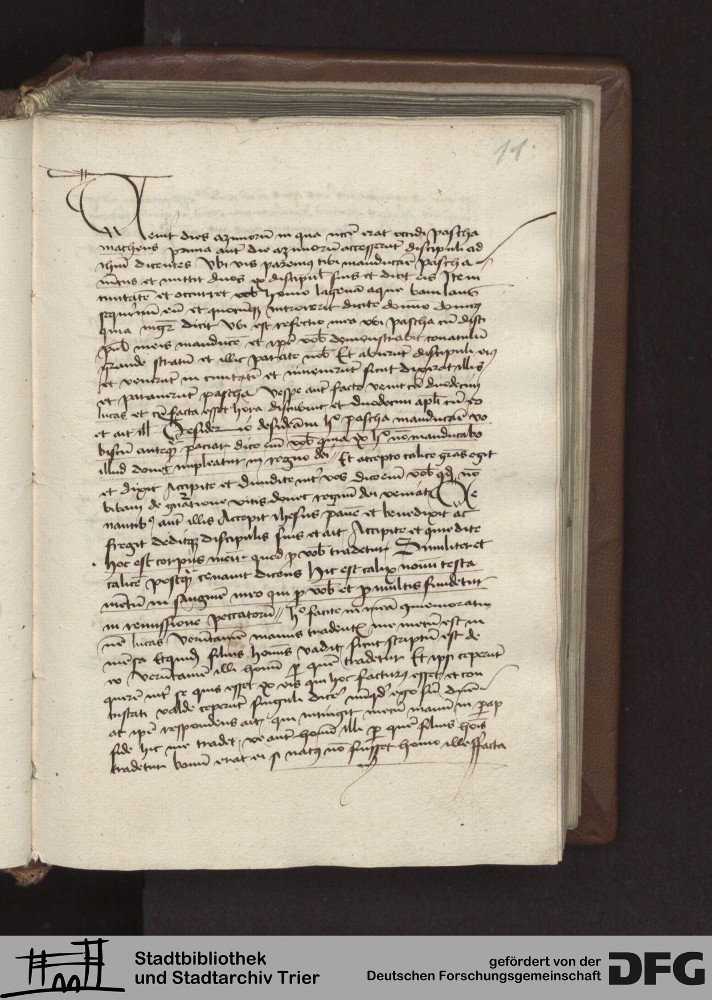 11.
Uenit dies azimorũ in qua necẽ erat occidi pascha
matheus prima aut die azimorũ accesserũt discipuli ad
ihm dicentes Vbi vis paremus tibi manducare pascha
et mittit duos ex discipul suis et dicit eis Item
ciuitatẽ et occurret vob homo lagenã aque baiulans
sequimini eũ et quocũq introierit dicite domino domus
quia mgr dicit Vbi est refectio mea vbi pascha cũ disci
pul meis manducẽ et ipe vob demonstrabit cenaculũ
grande stratũ et illic parate nob Et abierũt discipuli eius
et venerũt in ciuitatẽ et inuenerũt sicut dixerat illis
et parauerũt pascha Vespe aut facto venit cũ duodecim
lucas et cũ facta esset hora discubuit et duodecim apli cũ eo
et ait ill Desiderio desideraui hoc pascha manducare vo
biscũ anteq patiar dico eim vob quia ex hoc nõ manducabo
illud donec impleatur in regno dei Et accepto calice gras egit
et dixit Accipite et diuidite int vos dico eim vob qd nõ
bibam de gnatione vitis donec regnũ dei veniat Ce
nantibus aut illis Accepit ihesus pane et benedixit ac
fregit deditq discipulis suis et ait Accipite et comedite
hoc est corpus meũ quod p vob tradetur Similiter et
calicẽ postq cenauit dicens Hic est calix noui testa
mẽtũ in sanguine meo qui p vob et p multis fundetur
in remissione peccatorũ hoc facite in meã cõmemoratio
nẽ lucas Verũtamẽ manus tradentis me mecũ est in
mẽsa Et quidẽ filius hominis vadit sicut scriptũ est de
eo verũtamẽ ille homini p quẽ tradetur Et ipi ceperũt
querere int se quis esset ex eis qui hoc facturus esset et con
tristati valde ceperũt singuli dicere nũqd ego sũ dñe
at ipe respondens ait qui intingit mecũ manũ in parap
side hic me tradet ve aut homini illi p quẽ filius hois
tradetur bonũ erat ei si natus nõ fuisset homo ille facta
Stadtbibliothek
und Stadtarchiv Trier
gefördert von der
Deutschen Forschungsgemeinschaft
DFG